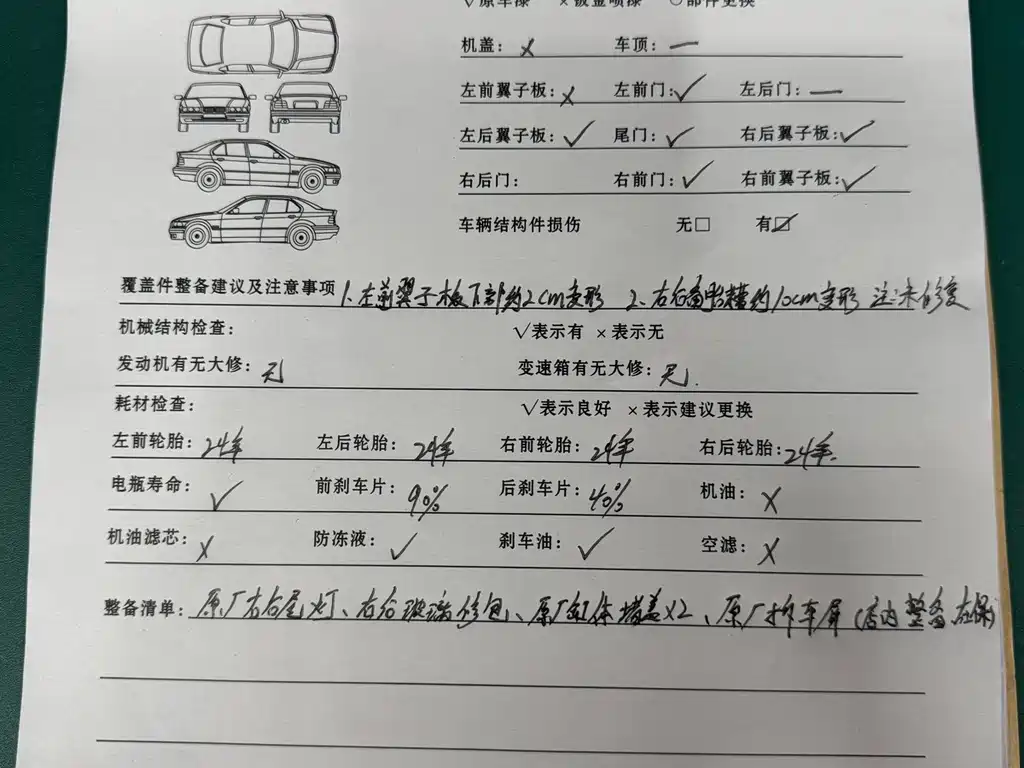 √原车漆 ×钣金喷漆 ○部件更换
机盖：× 车顶：—
左前翼子板：× 左前门：√ 左后门：—
左后翼子板：√ 尾门：√ 右后翼子板：√
右后门： 右前门：√ 右前翼子板：√
车辆结构件损伤 无□ 有☑
覆盖件整备建议及注意事项 1、左前翼子板下部约2cm变形 2、右后备胎槽约10cm变形 注：未修复
机械结构检查： √表示有 ×表示无
发动机有无大修：无 变速箱有无大修：无.
耗材检查： √表示良好 ×表示建议更换
左前轮胎：24年 左后轮胎：24年 右前轮胎：24年 右后轮胎：24年.
电瓶寿命：√ 前刹车片：90% 后刹车片：40% 机油：×
机油滤芯：× 防冻液：√ 刹车油：√ 空滤：×
整备清单：原厂右右尾灯、右后玻璃修包、原厂缸体堵盖×2、原厂拆车屏（店内整备，在保）